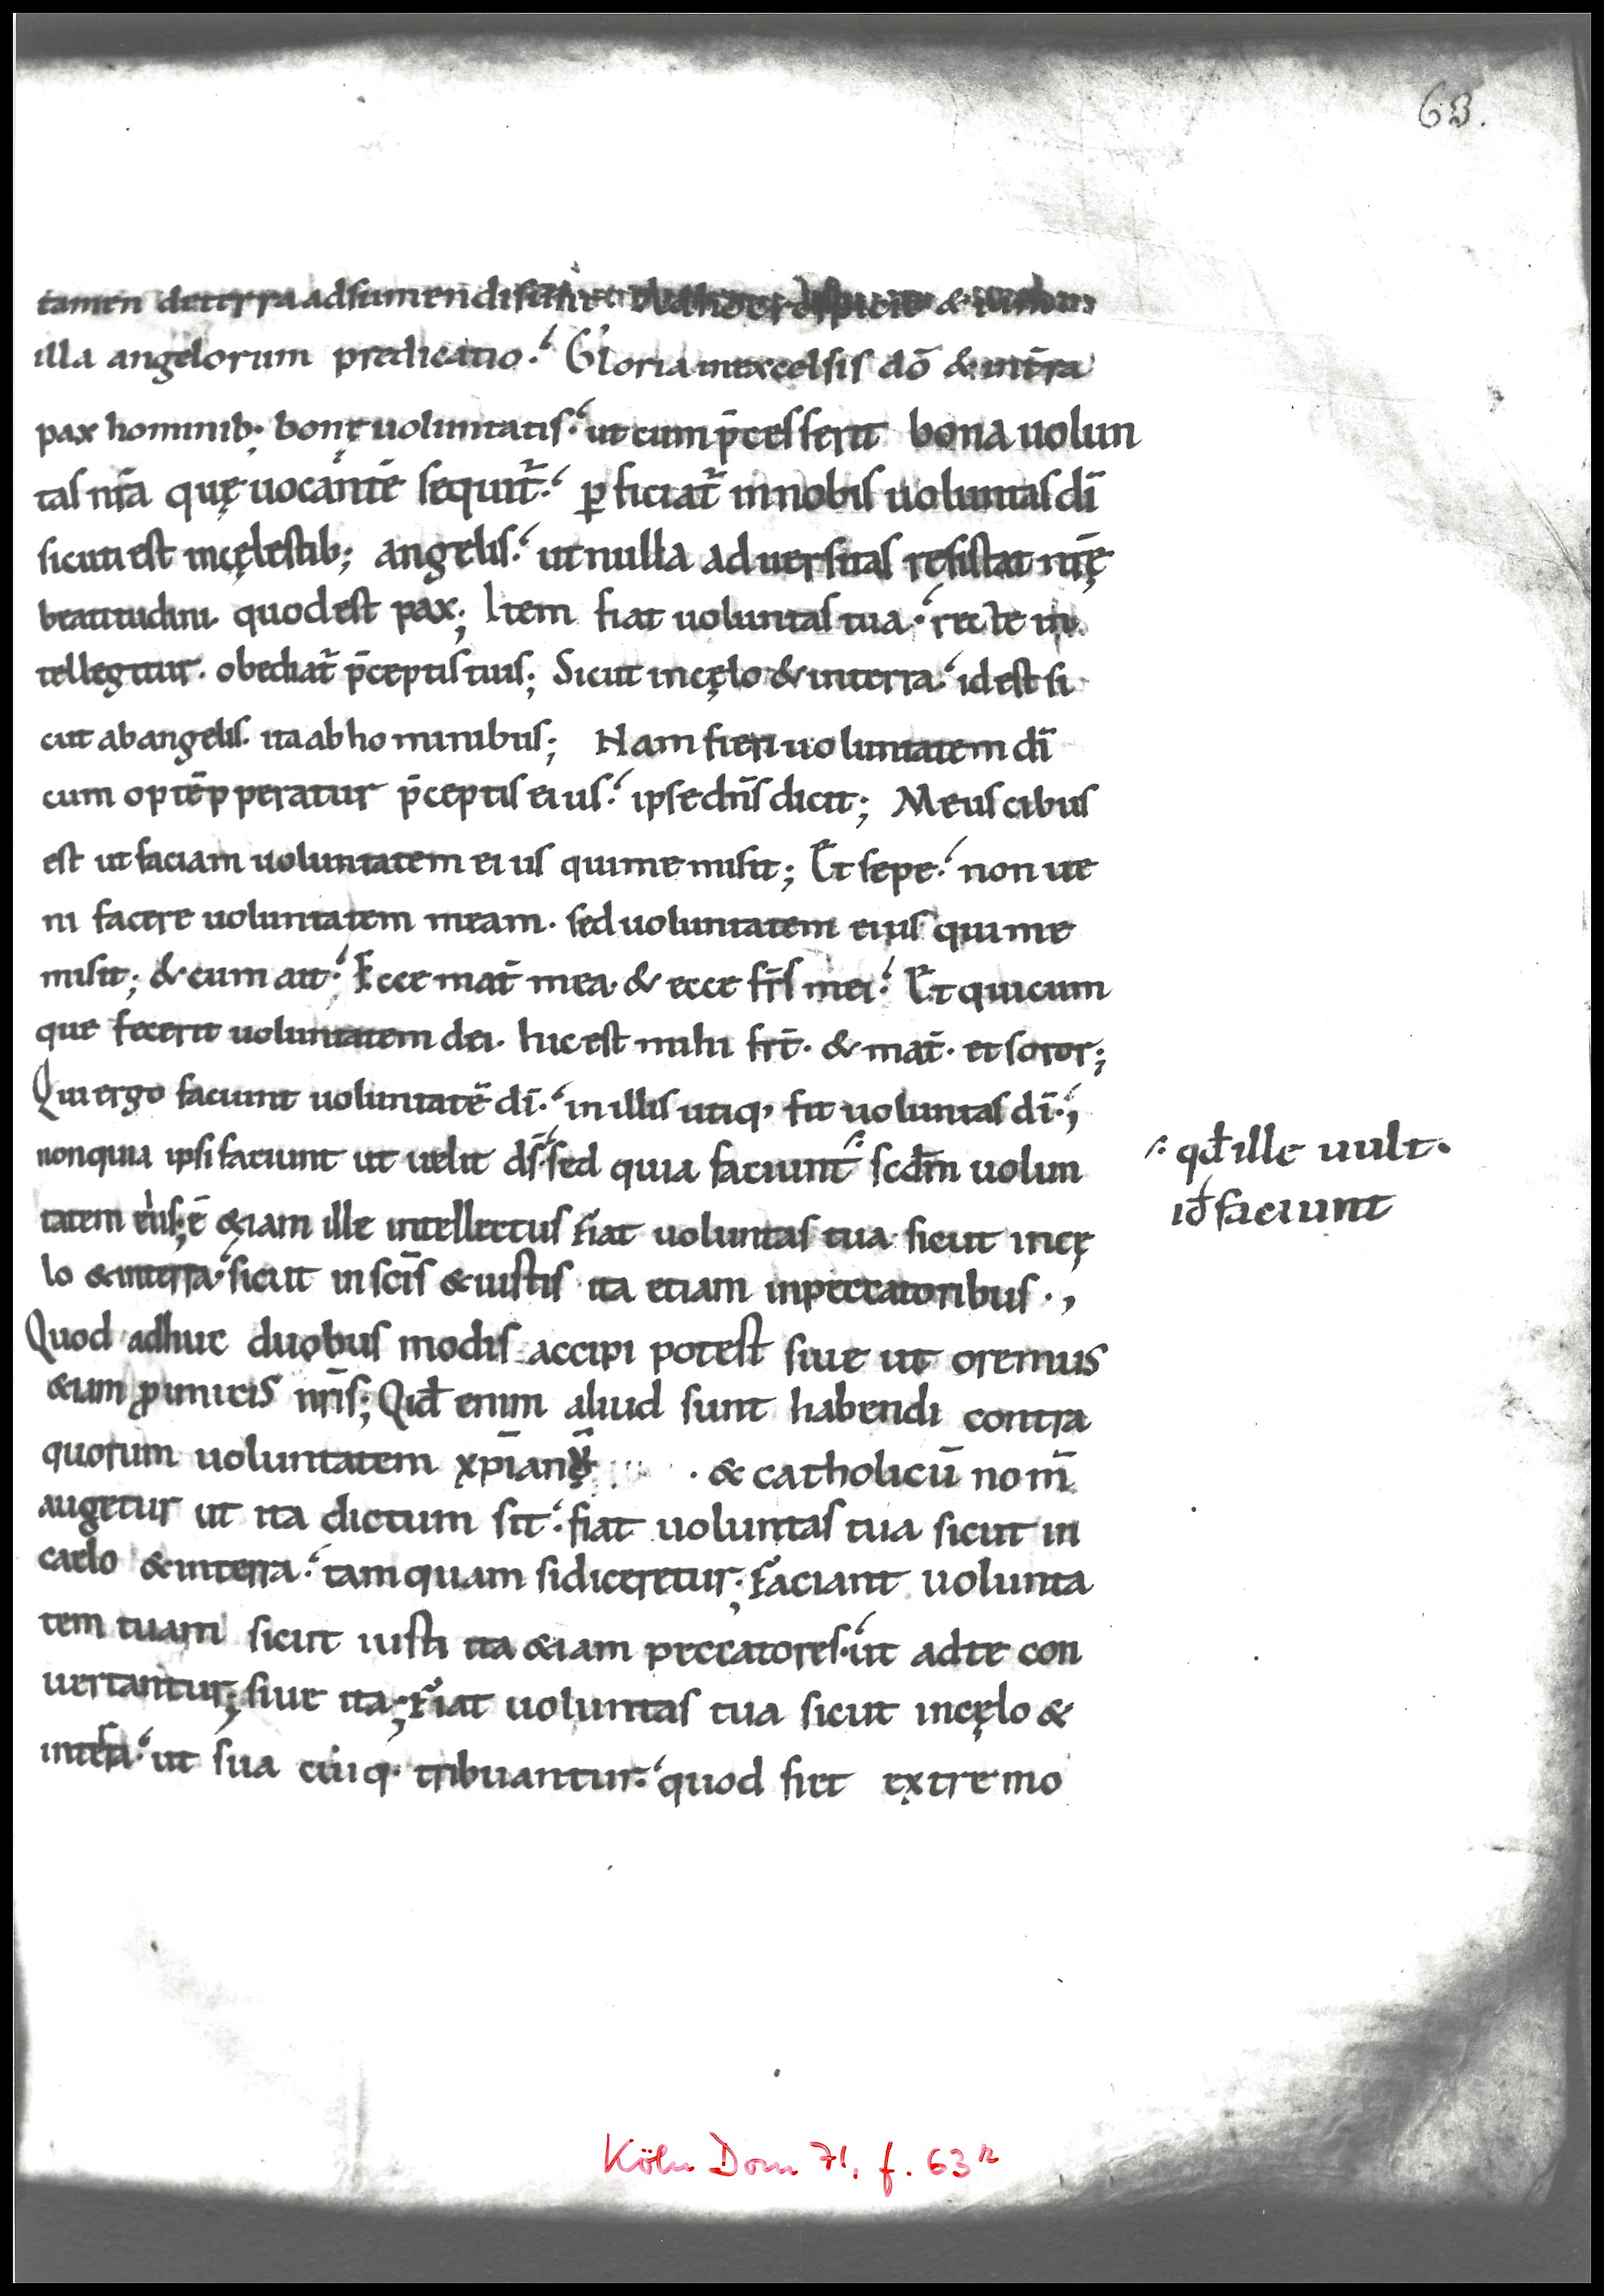 63.
tamen deterra adsumendi sunt. Ad hoc respicit & 
illa angelorum predicatio. Gloria inexcelsis dō & int̄ra
pax hominib. bonę uoluntatis. ut cum p̄cesserit bona uolun
tas nr̄a quę uocantē sequit̄. ꝑficiat̄ innobis uoluntas dī
sicuti est incęlestib; angelis. ut nulla aduersitas resistat nr̄ę
beatitudini. quod est pax; Item fiat uoluntas tua. recte in
tellegitur. obediat̄ p̄ceptis tuis; Sicut incęlo & interra. id est si
cut ab angelis. ita ab hominibus; Nam fieri uoluntatem dī
cum optēpperatur p̄ceptis eius. ipse dn̄s dicit; Meus cibus
est ut faciam uoluntatem eius qui me misit; Et sepe. non ue
ni facere uoluntatem meam. sed uoluntatem eius qui me
misit; & cum ait. Ecce mat̄ mea. & ecce fr̄s mei. Et quicum
que fecerit uoluntatem dei. hic est mihi frt̄. & mat̄. et soror;
Qui ergo faciunt uoluntatē dī. in illis utiq, fit uoluntas dī.,
non quia ipsi faciunt ut uelit ds̄. sed quia faciunt scdm̄ uolun
qđ ille uult.
id faciunt
tatem eius; ē &iam ille intellectus fiat uoluntas tua sicut incę
lo & interra. sicut in scīs & iustis ita etiam inpeccatoribus.,
Quod adhuc duobus modis accipi potest siue ut oremus
&iam p̄ inimicis nrīs; Qid enim aliud sunt habendi contra
quorum uoluntatem xp̄ian & catholicū nom̄
augetur ut ita dictum sit. fiat uoluntas tua sicut in
caelo & interra. tamquam si diceretur; faciant uolunta
tem tuam sicut iusti ita &iam peccatores. ut ad te con
uertantur; siue ita; Fiat uoluntas tua sicut incęlo &
interra. ut sua cuiq. tribuantur. quod fiet extremo
Köln Dom 71, f. 63r